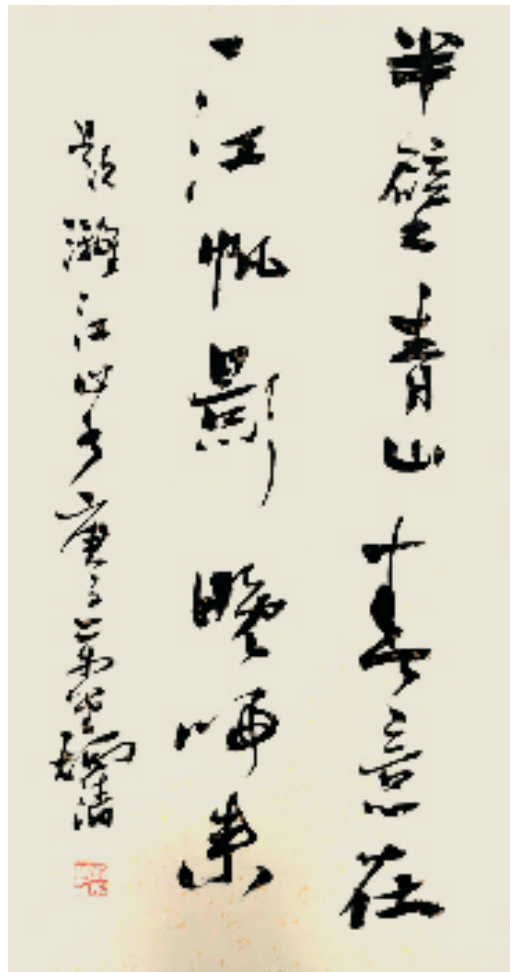 半壁青山春意在
一江帆影晚归来
题漓江山水庚子